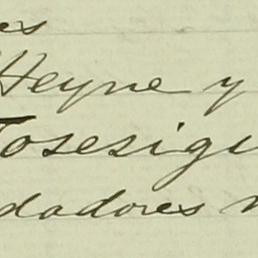 es
Heyne y
Tosesigu
dadores